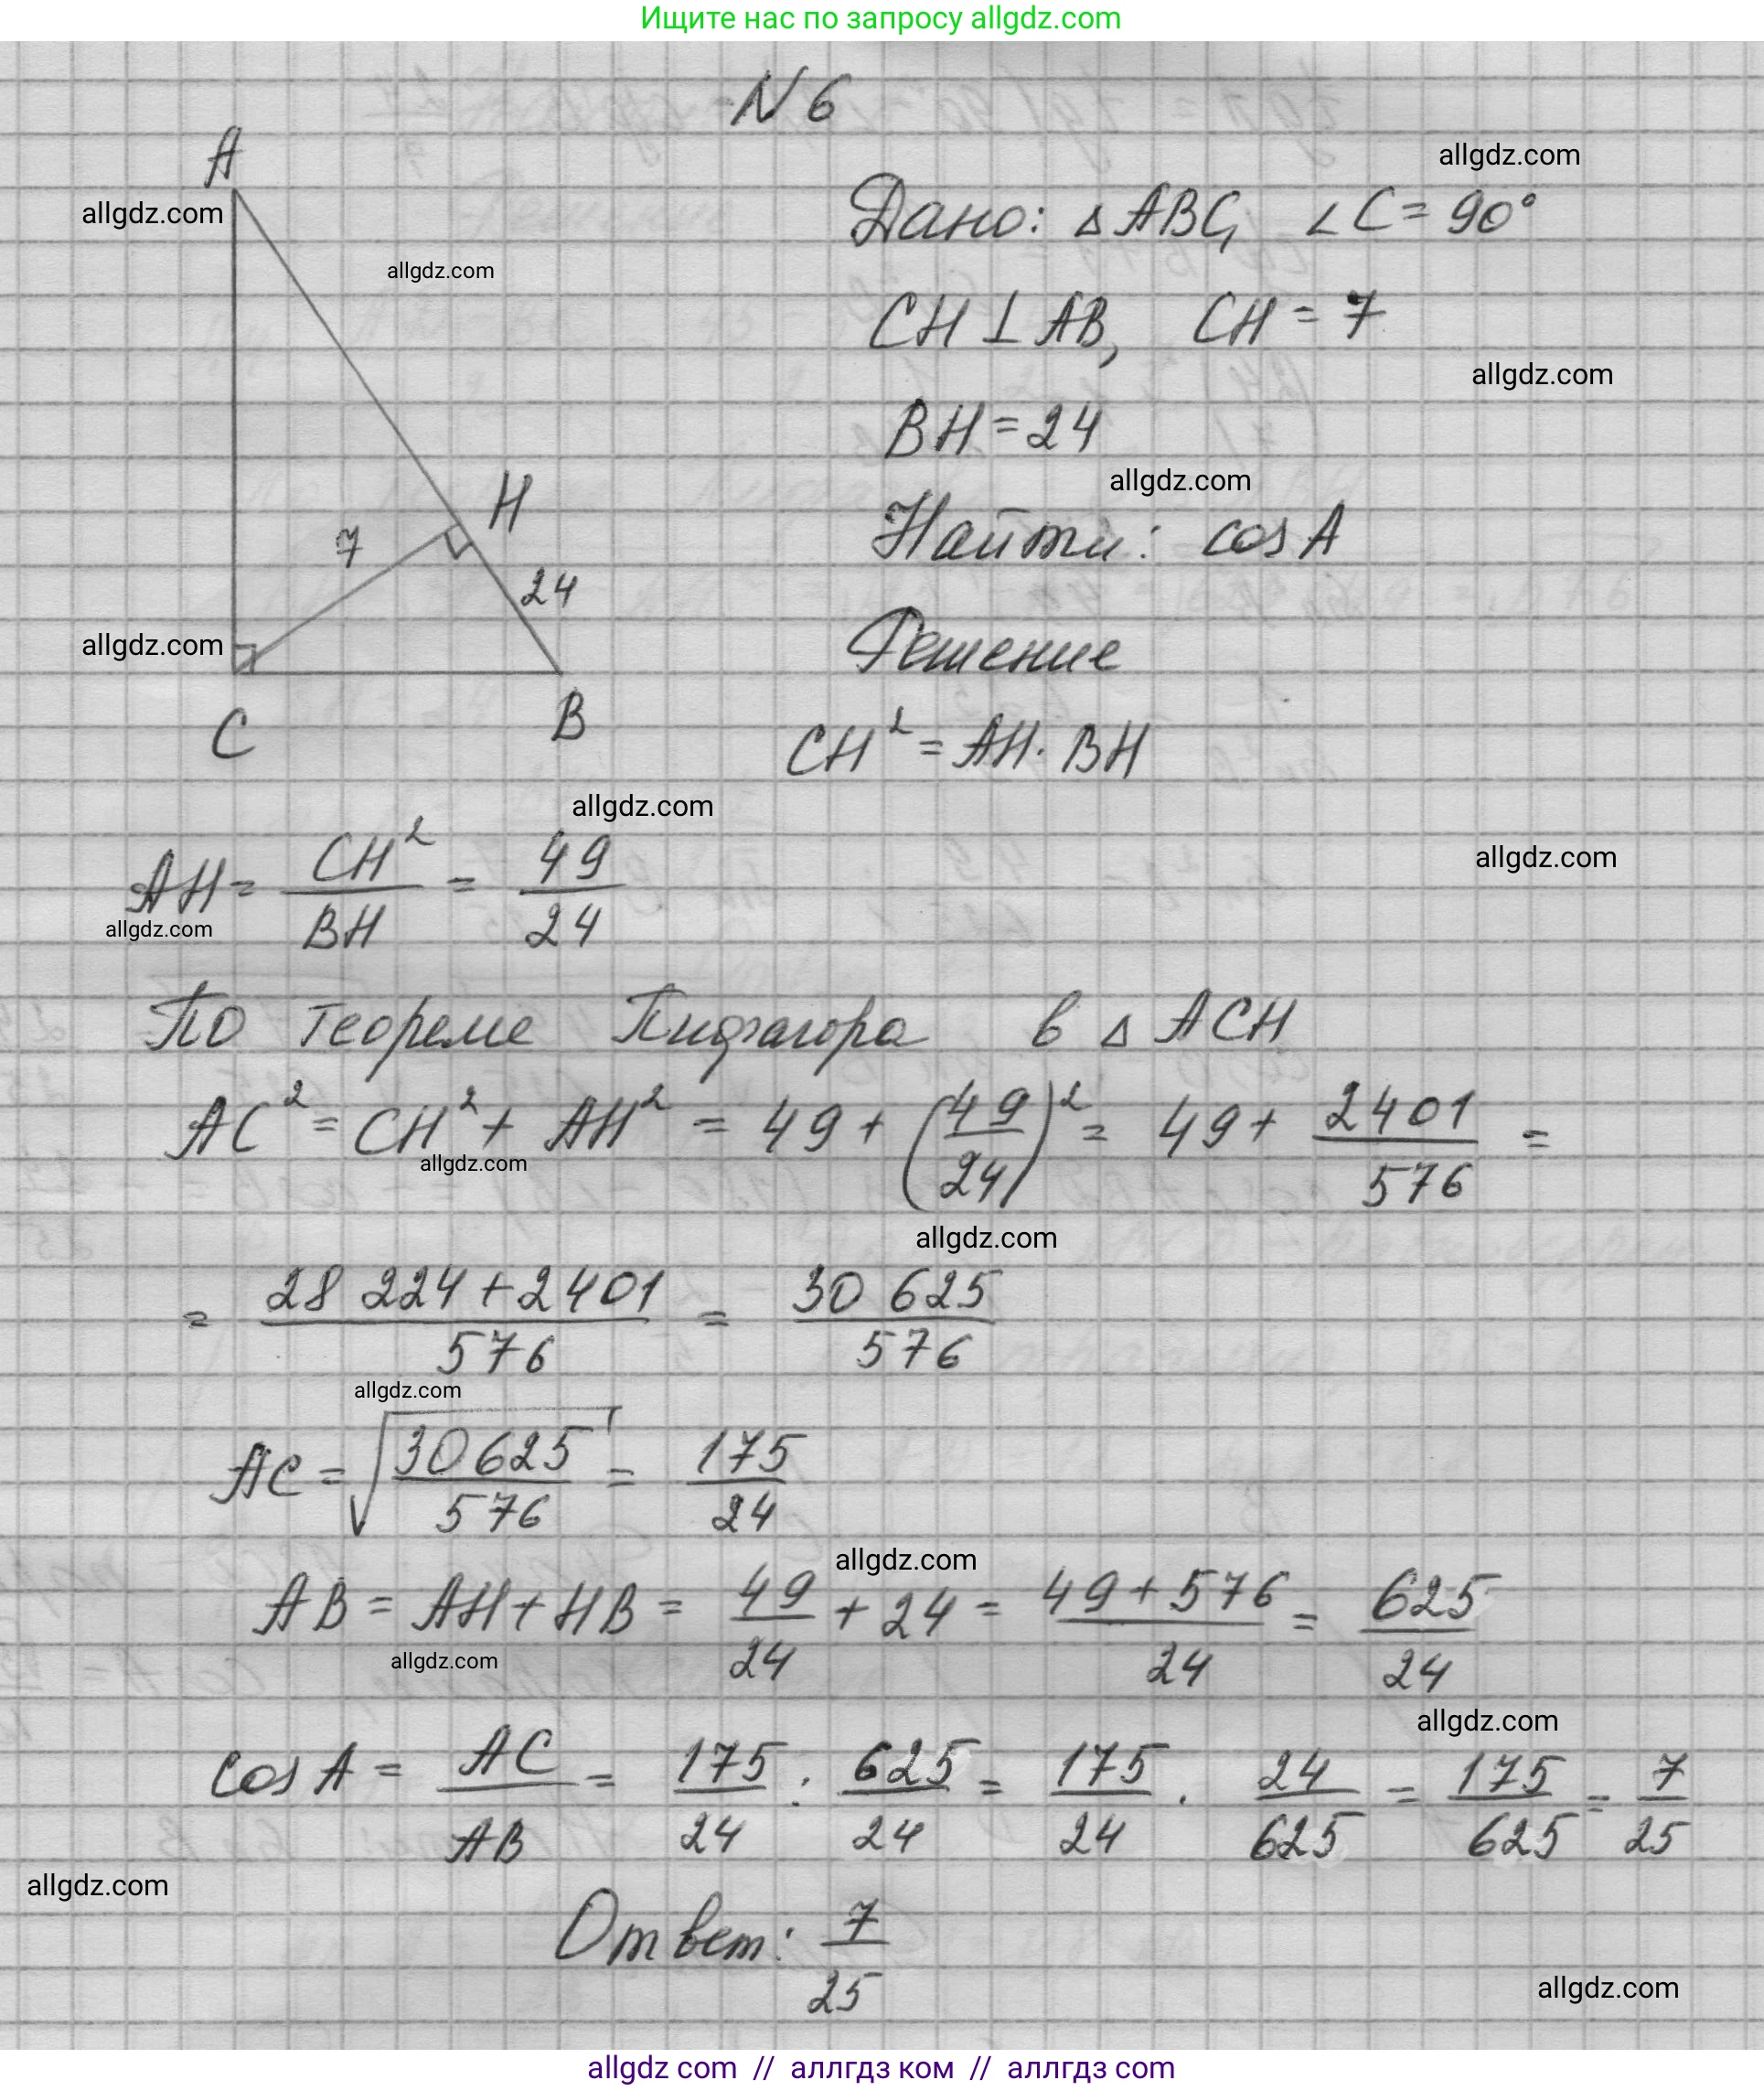 Ищите нас по запросу allgdz.com
N 6
A
allgdz.com
allgdz.com
allgdz.com
Дано: △ABC, ∠C = 90°
CH ⊥ AB, CH = 7
allgdz.com
BH = 24
allgdz.com
H
7
24
Найти: cos A
allgdz.com
Решение
C
B
CH² = AH · BH
allgdz.com
AH = CH²/BH = 49/24
allgdz.com
allgdz.com
По теореме Пифагора в △ ACH
AC² = CH² + AH² = 49 + (49/24)² = 49 + 2401/576 =
allgdz.com
allgdz.com
= (28 224 + 2401)/576 = 30 625/576
allgdz.com
AC = √(30625/576) = 175/24
allgdz.com
AB = AH + HB = 49/24 + 24 = (49 + 576)/24 = 625/24
allgdz.com
allgdz.com
cos A = AC/AB = 175/24 : 625/24 = 175/24 · 24/625 = 175/625 = 7/25
allgdz.com
Ответ: 7/25
allgdz.com
allgdz com // аллгдз ком // аллгдз com